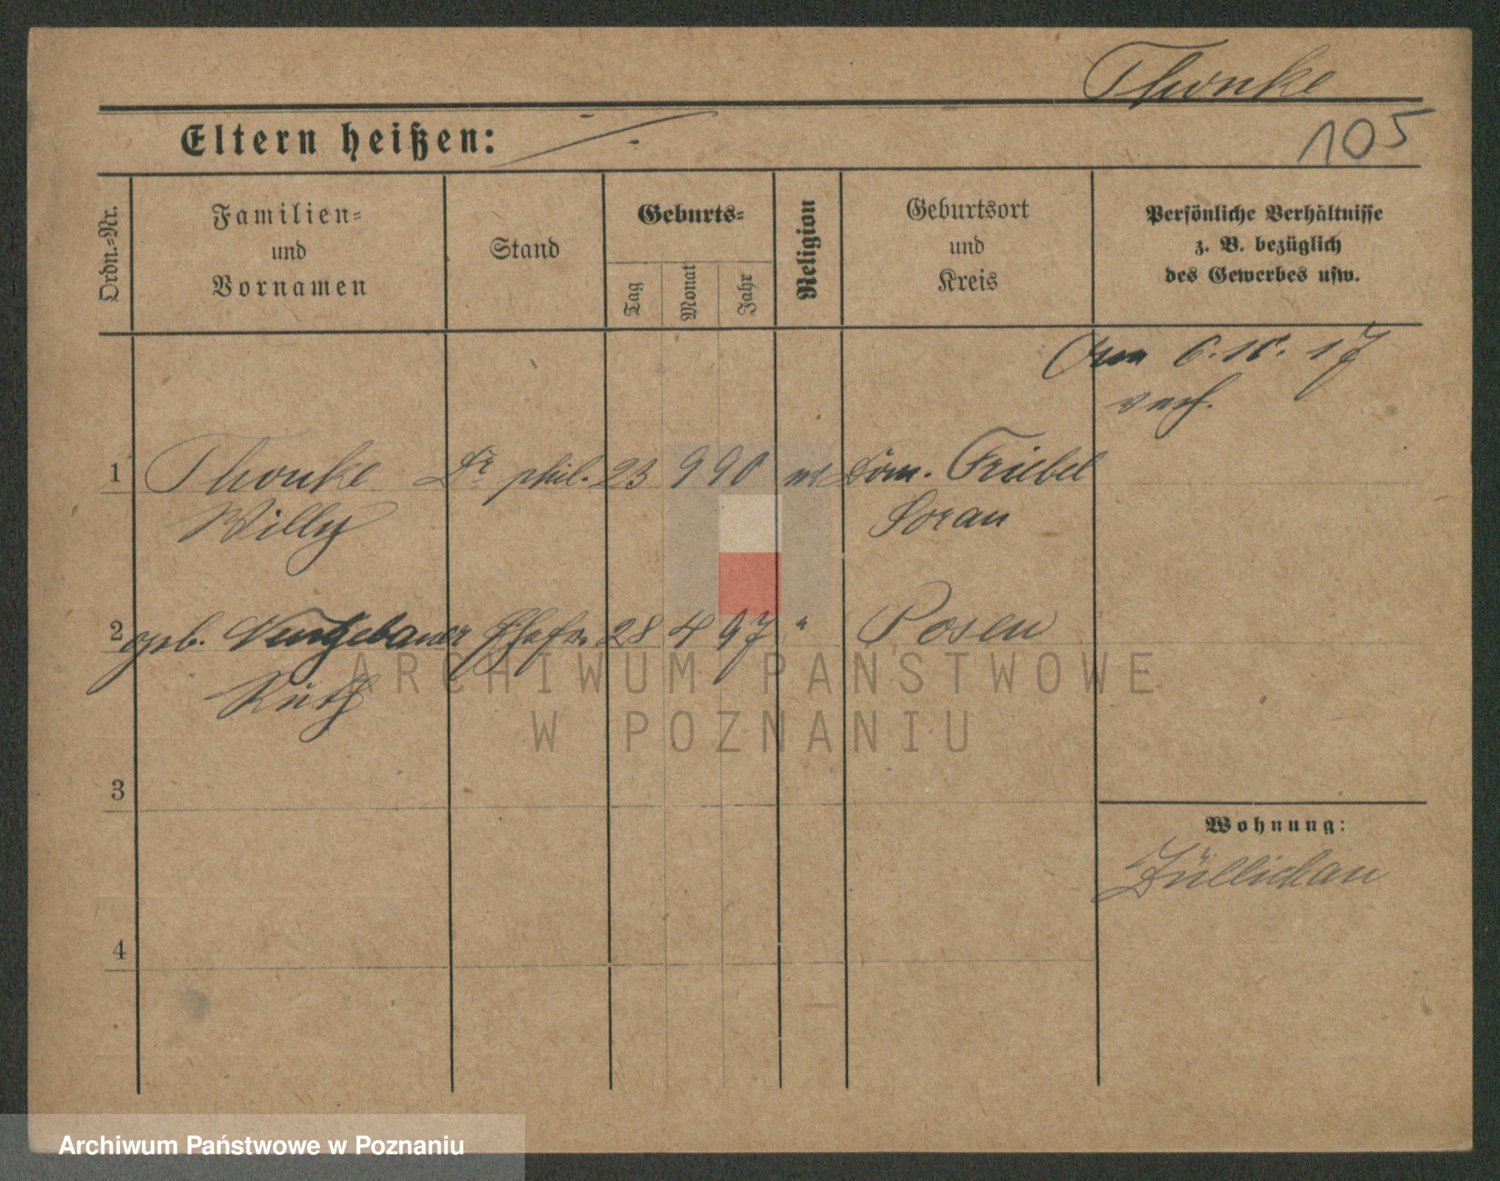 Thonke
Eltern heißen: ./.
105
Ordn.-Nr.
Familien-
und
Vornamen
Stand
Geburts-
Tag
Monat
Jahr
Religion
Geburtsort
und
Kreis
Persönliche Verhältnisse
z. B. bezüglich
des Gewerbes usw.
Am 6. 11. 17
verh.
1 Thonke Dr phil. 23 9 90 ev Dom. Friebel
Willy Sorau
2 geb. Neugebauer Ehefr. 28 4 97 " Posen
Ruth
3
Wohnung:
Züllichau
4
ARCHIWUM PAŃSTWOWE
W POZNANIU
Archiwum Państwowe w Poznaniu